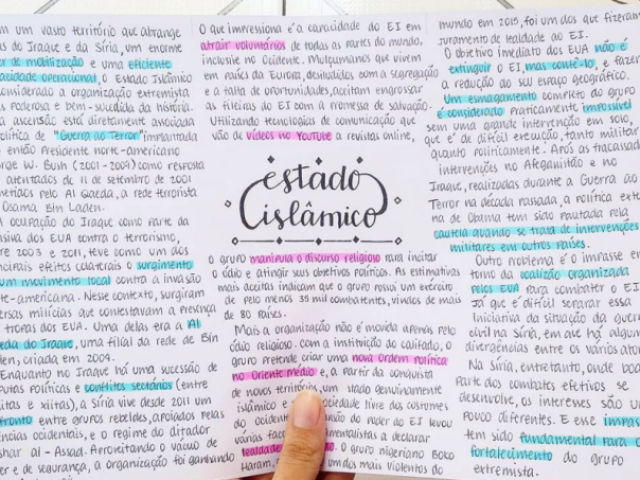 m um vasto território que abrange
as do Iraque e da Síria, um enorme
er de mobilização e uma eficiente
pacidade operacional, o Estado Islâmico
considerado a organização extremista
s poderosa e bem-sucedida da história.
a ascensão está diretamente associada
olítica de "Guerra ao Terror" implantada
então Presidente norte-americano
rge W. Bush (2001-2009) como resposta
atentados de 11 de setembro de 2001
metidos pelo Al Qaeda, a rede terrorista
Osama Bin Laden.
A ocupação do Iraque como parte da
nsiva dos EUA contra o terrorismo,
re 2003 e 2011, teve como um dos
ncipais efeitos colaterais o surgimento
um movimento local contra a invasão
te-americana. Nesse contexto, surgiram
ersas milícias que contestavam a presença
tropas dos EUA. Uma delas era a Al
eda do Iraque, uma filial da rede de Bin
den, criada em 2004.
Enquanto no Iraque há uma sucessão de
putas políticas e conflitos sectários (entre
itas e xiitas), a Síria vive desde 2011 um
fronto entre grupos rebeldes, apoiados pelas
ências ocidentais, e o regime do ditador
shar al-Assad. Aproveitando o vácuo de
er e de segurança, a organização foi ganhando
O que impressiona é a capacidade do EI em
atrair voluntários de todas as partes do mundo,
inclusive no Ocidente. Muçulmanos que vivem
em países da Europa, desiludidos com a segregação
e a falta de oportunidades, aceitam engrossar
as fileiras do EI com a promessa de salvação.
Utilizando tecnologias de comunicação que
vão de vídeos no YouTube a revistas online,
estado
islâmico
o grupo manipula o discurso religioso para incitar
o ódio e atingir seus objetivos políticos. As estimativas
mais aceitas indicam que o grupo possui um exército
de pelo menos 35 mil combatentes, vindos de mais
de 80 países.
Mas a organização não é movida apenas pelo
ódio religioso. Com a instituição do califado, o
grupo pretende criar uma nova ordem política
no Oriente Médio e, a partir da conquista
de novos territórios, um estado genuinamente
islâmico e sociedade livre dos costumes
do ocident do poder do EI levou
várias fac mentalistas a declarar
lealdade O grupo nigeriano Boko
Haram, um dos mais violentos do
mundo em 2015, foi um dos que fizeram
juramento de lealdade ao EI.
O objetivo imediato dos EUA não é
extinguir o EI, mas contê-lo, e fazer
a redução do seu espaço geográfico.
Um esmagamento completo do grupo
é considerado praticamente impossível
sem uma grande intervenção em solo,
que é de difícil execução, tanto militar
quanto politicamente. Após as fracassad
intervenções no Afeganistão e no
Iraque, realizadas durante a Guerra ao
Terror na década passada, a política exte
na de Obama tem sido pautada pela
cautela quando se trata de intervenções
militares em outros países.
Outro problema é o impasse em
torno da coalizão organizada
pelos EUA para combater o EI
Já que é difícil separar essa
iniciativa da situação da guerra
civil na Síria, em que há algum
divergências entre os vários ato
Na Síria, entretanto, onde boa
parte dos combates efetivos se
desenvolve, os interesses são um
pouco diferentes. E esse impass
tem sido fundamental para o
fortalecimento do grupo
extremista.